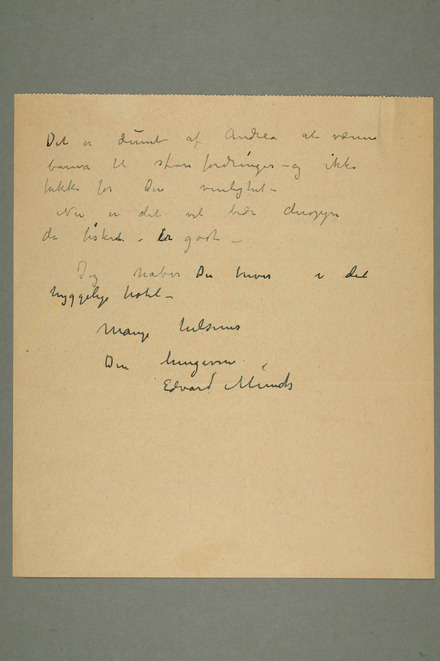 Det er dumt af Andrea at vænne
barna til store fordringer – og ikke
takke for Din venlighet –
Nu er det vel bedre deroppe
da fisket – er godt –
Jeg håber Du trives i det
hyggelige hotel –
Mange hilsener
Din hengivne
Edvard Munch